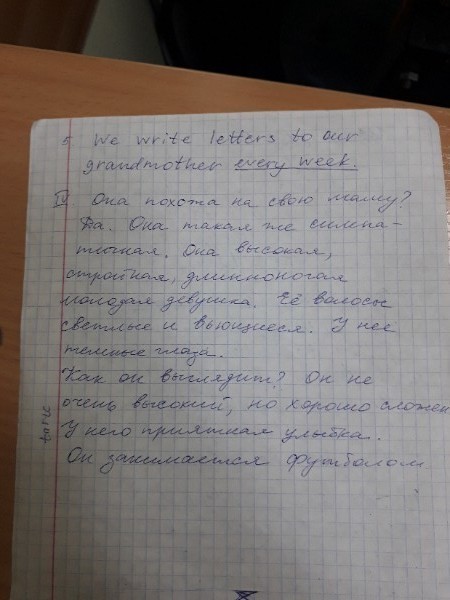 5 We write letters to our
grandmother every week.
IV Она похожа на свою маму?
Да. Она такая же симпа-
тичная. Она высокая,
стройная, длинноногая
молодая девушка. Её волосы
светлые и вьющиеся. У неё
темные глаза.
Как он выглядит? Он не
очень высокий, но хорошо сложен
У него приятная улыбка.
Он занимается футболом